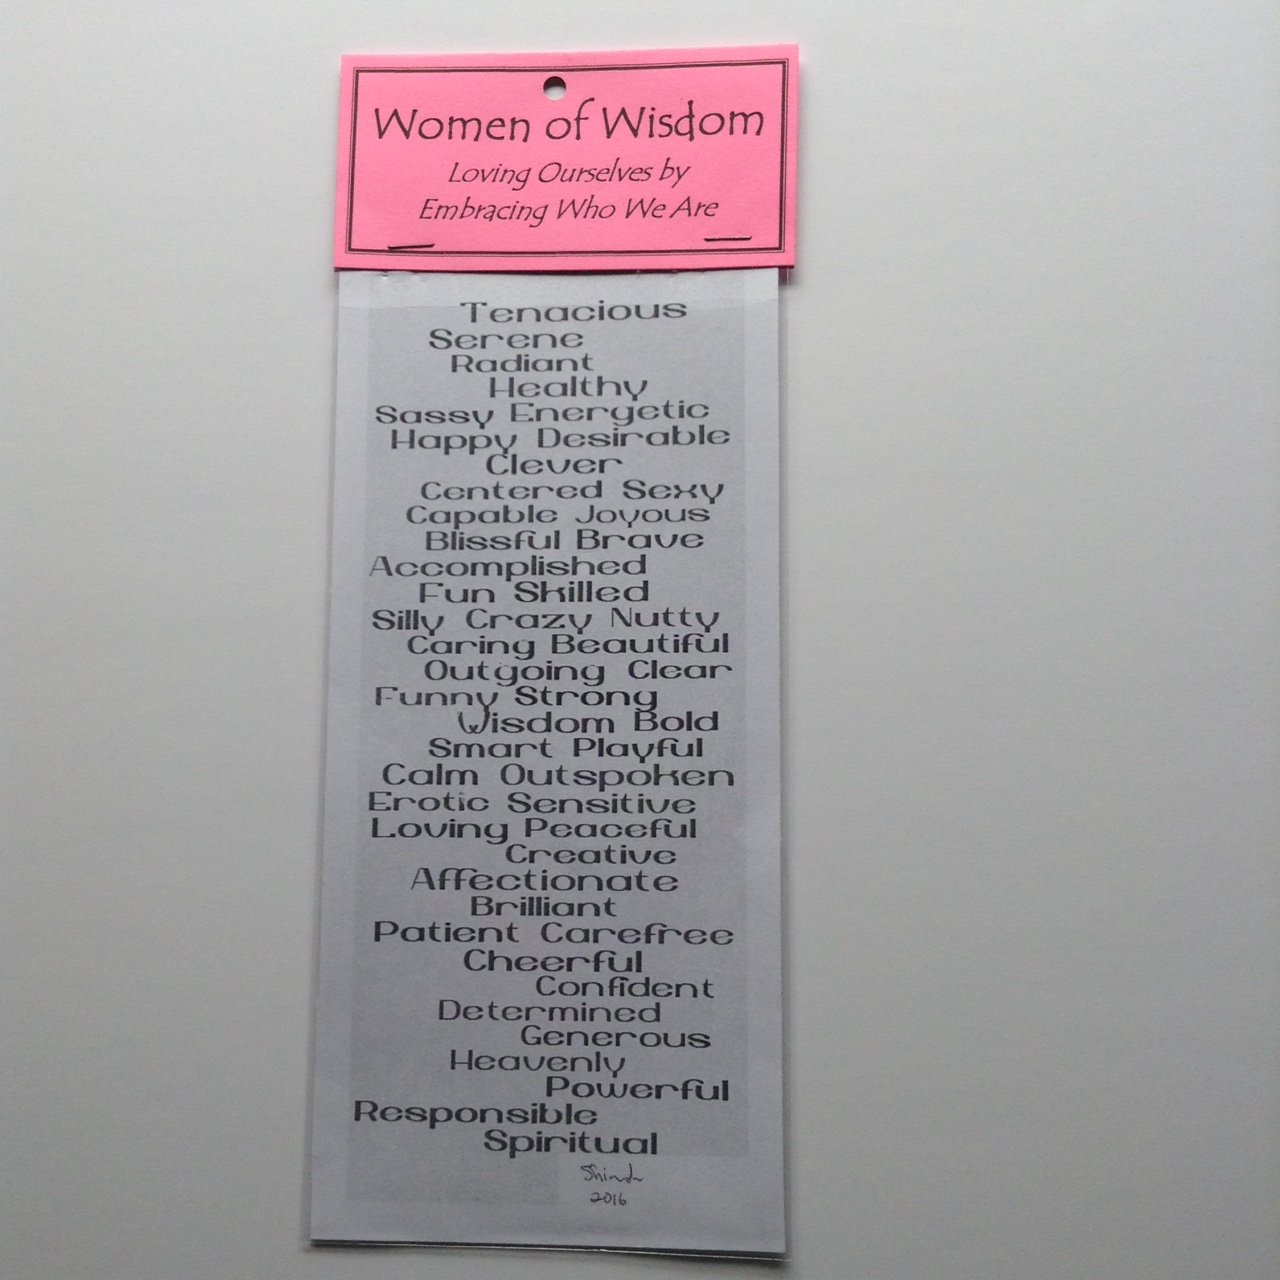 Women of Wisdom
Loving Ourselves by
Embracing Who We Are
Tenacious
Serene
Radiant
Healthy
Sassy Energetic
Happy Desirable
Clever
Centered Sexy
Capable Joyous
Blissful Brave
Accomplished
Fun Skilled
Silly Crazy Nutty
Caring Beautiful
Outgoing Clear
Funny Strong
Wisdom Bold
Smart Playful
Calm Outspoken
Erotic Sensitive
Loving Peaceful
Creative
Affectionate
Brilliant
Patient Carefree
Cheerful
Confident
Determined
Generous
Heavenly
Powerful
Responsible
Spiritual
2016